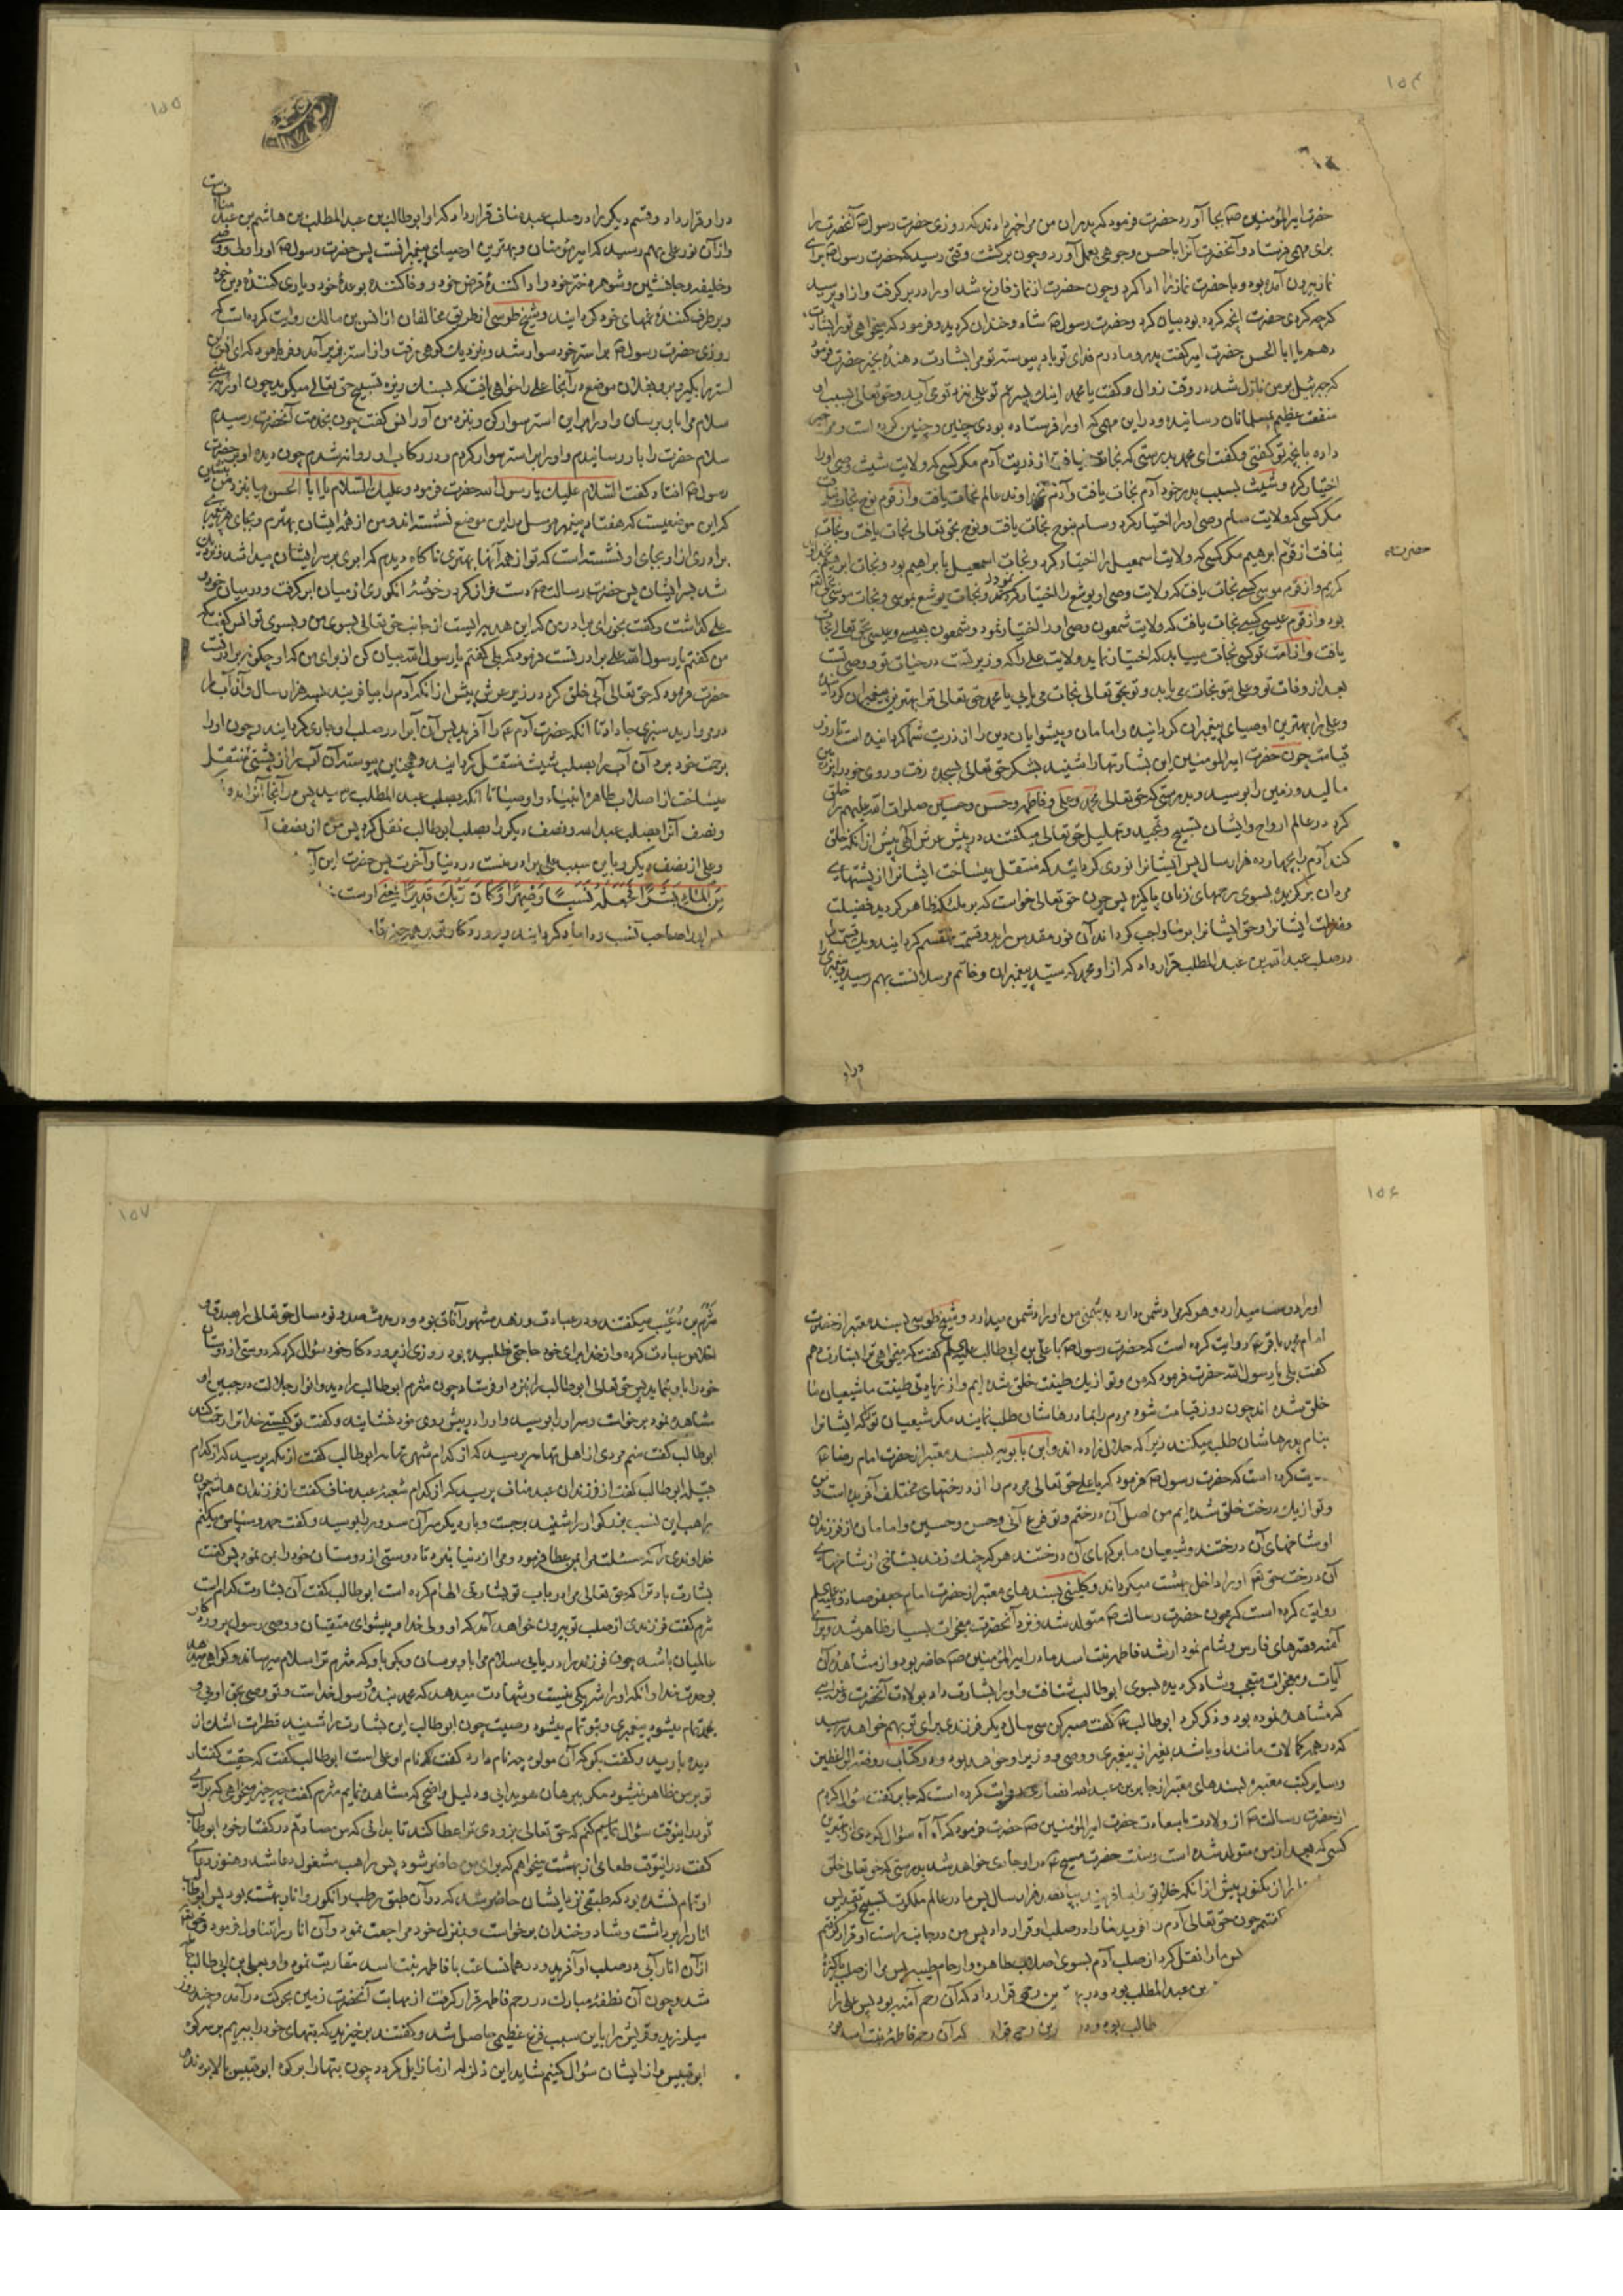 ۱۵۴
حضرت امیرالمؤمنین بجا آورد حضرت فرمود که پدران من مرا خبر دادند که روزی حضرت رسول آنحضرت را
برای مهمی فرستاد و آنحضرت آنرا باحسن وجوهی بعمل آورد و چون برگشت وقتی رسید که حضرت رسول برای
نماز بیرون آمده بود و با حضرت نماز را ادا کرد و چون حضرت از نماز فارغ شد او را در بر گرفت و از او پرسید
که چه کردی حضرت آنچه کرده بود بیان کرد و حضرت رسول شاد و خندان گردید و فرمود که میخواهی تو را بشارت
دهم یا ابا الحسن حضرت امیر گفت پدر و مادرم فدای تو باد پیوسته تو مرا بشارت دهندهٔ بخیر حضرت فرمود
که جبرئیل بر من نازل شد در وقت زوال و گفت یا محمد اینک پسر عم تو علی نزد تو می آید و حق تعالی بسبب او
منفعت عظیم بمسلمانان رسانیده و در این مهمی که او را فرستاده بودی چنین و چنین کرده است و مرا خبر
داد بآنچه تو گفتی و گفت ای محمد بدرستی که نجات یافت از ذریت آدم مگر کسی که ولایت شیث وصی او را
اختیار کرد و شیث بسبب پدر خود آدم نجات یافت و آدم بخداوند عالم نجات یافت و از قوم نوح نجات نیافت
مگر کسی که ولایت سام وصی او را اختیار کرد و سام بنوح نجات یافت و نوح بحق تعالی نجات یافت و نجات
نیافت از قوم ابرهیم مگر کسی که ولایت اسمعیل را اختیار کرد و نجات اسمعیل بابراهیم بود و نجات ابرهیم بخداوند
کریم و از قوم موسی کسی نجات یافت که ولایت وصی او یوشع را اختیار کرد و نجات یوشع بموسی و نجات موسی بحق تعالی
بود و از قوم عیسی کسی نجات یافت که ولایت شمعون وصی او را اختیار نمود و شمعون بعیسی و عیسی بحق تعالی نجات
یافت و از امت تو کسی نجات مییابد که اختیار نماید ولایت علی را که وزیر تست در حیات تو و وصی تست
بعد از وفات تو و علی بتو نجات می یابد و تو بحق تعالی نجات می یابی یا محمد حق تعالی ترا بهترین پیغمبران گردانیده
و علی را بهترین اوصیای پیغمبران گردانیده و امامان و پیشوایان دین را از ذریت شما گردانیده است تا روز
قیامت چون حضرت امیرالمومنین این بشارتها را شنید بشکر حق تعالی بسجده رفت و روی خود را بزمین
مالید و زمین را بوسید و بدرستی که حق تعالی محمد و علی و فاطمه و حسن و حسین صلوات الله علیهم را خلق
کرد در عالم ارواح و ایشان تسبیح و تمجید و تهلیل حق تعالی میگفتند در پیش عرش الهی پیش از آنکه خلق
کند آدم را بچهارده هزار سال پس ایشانرا نوری گردانید که منتقل میساخت ایشانرا از پشتهای
مردان برگزیده بسوی رحمهای زنان پاکیزه پس چون حق تعالی خواست که بر ملئکه ظاهر گردید فضیلت
و منزلت ایشانرا و حق ایشانرا بر ما واجب گرداند آن نور مقدس را بدو قسمت منقسم گردانید و یک قسمت را
در صلب عبدالله بن عبدالمطلب قرار داد که از او محمد که سید پیغمبران و خاتم مرسلانست بهم رسید و پیغمبری را
در او
۱۵۵
در او قرار داد و قسم دیگر را در صلب عبد مناف قرار داد که او ابوطالب بن عبدالمطلب بن هاشم بن عبد مناف
و از آن نور علی بهم رسید که امیر مؤمنان و بهترین اوصیای پیغمبرانست پس حضرت رسول او را ولی و وصی
و خلیفه و جانشین و شوهر دختر خود و ادا کنندهٔ قرض خود و وفا کننده بوعدهٔ خود و یاری کنندهٔ دین خود
و برطرف کنندهٔ غمهای خود گردانید و شیخ طوسی از طریق مخالفان از انس بن مالک روایت کرده است که
روزی حضرت رسول بر استر خود سوار شد و بنزدیک کوهی رفت و از استر بزیر آمد و فرمود که ای انس این
استر را بگیر و برو بفلان موضع در آنجا علی را خواهی یافت که بسنگ ریزه تسبیح حق تعالی میگوید چون او را ببینی
سلام مرا باو برسان و او را بر این استر سوار کن و بنزد من آور انس گفت چون بخدمت آنحضرت رسیدم
سلام حضرت را باو رسانیدم و او را بر استر سوار کردم و در رکاب او روانه شدم چون دیده او بر حضرت
رسول افتاد گفت السلام علیک یا رسول الله حضرت فرمود و علیک السلام یا ابا الحسن بیا بنزد من بنشین
که این موضعیست که هفتاد پیغمبر مرسل در این موضع نشسته اند و من از همهٔ ایشان بهترم و بجای هر پیغمبری
برادری از او بجای او نشسته است که تو از همه آنها بهتری ناگاه دیدم که ابری بر سر ایشان پیدا شد
شد بسر ایشان پس حضرت رسالت دست فراز کرد و خوشهٔ انگوری از میان ابر گرفت و در میان خود و
علی گذاشت و گفت بخور ای برادر من که این هدیه ایست از جانب حق تعالی بسوی من و بسوی تو انس گفت که
من گفتم یا رسول الله علی برادر تست فرمود که بلی گفتم یا رسول الله بیان کن از برای من که او چگونه برادر تست
حضرت فرمود که حق تعالی آبی خلق کرد در زیر عرش پیش از آنکه آدم را بیافریند بسه هزار سال و آن آب را
در مروارید سبزی جا داد تا آنکه حضرت آدم را آفرید پس آن آب را در صلب او جاری گردانید و چون او را
برحمت خود برد آن آب را بصلب شیث منتقل گردانید و همچنین پیوسته آن آب را از پشتی منتقل
میساخت از اصلاب طاهره انبیا و اوصیا تا آنکه بصلب عبد المطلب رسید پس در آنجا آنرا
و نصف آنرا بصلب عبد الله و نصف دیگر را بصلب ابوطالب نقل کرد پس من از نصف
و علی از نصف دیگر و باین سبب علی برادر منست در دنیا و آخرت پس حضرت این
مِنَ الْمَاءِ بَشَرًا فَجَعَلَهُ نَسَبًا وَصِهْرًا وَكَانَ رَبُّكَ قَدِيرًا یعنی اوست
صاحب نسب و داماد گردانید و پروردگار تو بر همه چیز
۱۵۶
او را دوست میدارد و هر که مرا دشمن دارد بدشمنی من او را دشمن میدارد و شیخ طوسی بسند معتبر از حضرت
امام محمد باقر روایت کرده است که حضرت رسول با علی بن ابی طالب گفت که میخواهی ترا بشارت دهم
گفت بلی یا رسول الله حضرت فرمود که من و تو از یک طینت خلق شده ایم و از زیادتی طینت ما شیعیان ما
خلق شده اند چون روز قیامت شود مردم را بمادرهاشان طلب نمایند مگر شیعیان تو که ایشانرا
بنام پدرهاشان طلب میکنند زیرا که حلال زاده اند و ابن بابویه بسند معتبر از حضرت امام رضا
روایت کرده است که حضرت رسول فرمود که یا علی حق تعالی مردم را از درختهای مختلف آفریده است و من
و تو از یک درخت خلق شده ایم من اصل آن درختم و تو فرع آنی و حسن و حسین و امامان از فرزندان
او شاخهای آن درختند و شیعیان ما برگهای آن درختند هر که چنگ زند بشاخی از شاخهای
آن درخت حق تعالی او را داخل بهشت میگرداند و کلینی بسندهای معتبر از حضرت امام جعفر صادق
روایت کرده است که چون حضرت رسالت متولد شد و نزد آنحضرت معجزات بسیار ظاهر شد و برای
آمنه قصرهای فارس و شام نمودار شد فاطمه بنت اسد مادر امیرالمؤمنین حاضر بود و از مشاهده آن
آیات و معجزات متعجب و شاد گردیده بسوی ابوطالب شتافت و او را بشارت داد بولادت آنحضرت و غرایبی
که مشاهده نموده بود و ذکر کرد ابوطالب گفت صبر کن سی سال دیگر فرزندی برای تو بهم خواهد رسید
که در همه کمالات مانند او باشد بغیر از پیغمبری و وصی و وزیر او خواهد بود و در کتاب روضة الواعظین
و سایر کتب معتبره بسندهای معتبر از جابر بن عبدالله انصاری روایت کرده است که جابر گفت سؤال کردم
از حضرت رسالت از ولادت با سعادت حضرت امیرالمؤمنین حضرت فرمود که آه آه سؤال کردی از بهترین
کسی که بعد از من متولد شده است و سنت حضرت مسیح در او جاری خواهد شد بدرستی که حق تعالی خلق
از یکنور پیش از آنکه خلایق را بیافریند بپانصد هزار سال پس ما در عالم ملکوت تسبیح و تقدیس
گفتیم چون حق تعالی آدم را آفرید ما را در صلب او قرار داد پس من در جانب راست او قرار گرفتم
پس ما را نقل کرد از صلب آدم بسوی اصلاب طاهره و ارحام طیبه پس مرا از صلب پاکیزهٔ
بن عبدالمطلب بود و در رحمی قرار داد که آن رحم آمنه بود پس علی را
طالب بود و در رحمی قرار که آن رحم فاطمه بنت اسد
۱۵۷
مثرم بن دعیب میگفتند و در عبادت و زهد مشهور آفاق بود و در مدت صد و نود سال حق تعالی را بصدق و
اخلاص عبادت کرده و از خدا برای خود حاجتی نطلبیده بود روزی از پروردگار خود سؤال کرد که دوستی از دوستان
خود را باو بنماید پس حق تعالی ابوطالب را بنزد او فرستاد چون مثرم ابوطالب را دید و انوار جلالت در جبین او
مشاهده نمود برخواست و سر او را بوسید و او را در پیش روی خود نشانید و گفت تو کیستی خدا ترا رحمت کند
ابوطالب گفت منم مردی از اهل تهامه پرسید که از کدام شهر تهامه ابوطالب گفت از مکه پرسید که از کدام
قبیله ابوطالب گفت از فرزندان عبد مناف پرسید که از کدام شعبهٔ عبد مناف گفت از فرزندان هاشم چون
راهب این نسب بزرگوار را شنید برجست و بار دیگر سر آن سرور را بوسید و گفت حمد و سپاس میکنم
خداوندی را که مسئلت مرا بمن عطا فرمود و مرا از دنیا نبرد تا دوستی از دوستان خود را بمن نمود پس گفت
بشارت باد ترا که حق تعالی مرا در باب تو بشارتی الهام کرده است ابوطالب گفت آن بشارت کدام است
مثرم گفت فرزندی از صلب تو بیرون خواهد آمد که او ولی خدا و پیشوای متقیان و وصی رسول پروردگار
عالمیان باشد چون فرزند را دریابی سلام مرا باو برسان و بگو باو که مثرم ترا سلام میرساند و گواهی میدهد
بوحدت خدا و آنکه او را شریکی نیست و شهادت میدهد که محمد بنده و رسول خداست و تو وصی بحق اوئی و
بمحمد تمام میشود پیغمبری و بتو تمام میشود وصیت چون ابوطالب این بشارت را شنید قطرات اشک از
دیده بارید و گفت بگو که آن مولود چه نام دارد گفت که نام او علی است ابوطالب گفت که حقیقت گفتار
تو بر من ظاهر نمیشود مگر ببرهان هویدائی و دلیل واضحی که مشاهده نمایم مثرم گفت چه چیز میخواهی که برای
تو در اینوقت سؤال نمایم کنم که حق تعالی بزودی ترا عطا کند تا بدانی که من صادقم در گفتار خود ابوطالب
گفت در اینوقت طعامی از بهشت میخواهم که برای من حاضر شود پس راهب مشغول دعا شد و هنوز دعای
او تمام نشده بود که طبقی نزد ایشان حاضر شد که در آن طبق رطب و انگور و انار بهشت بود پس ابوطالب
انار را برداشت و شاد و خندان برخواست و بمنزل خود مراجعت نمود و آن انار را تناول فرمود و حق تعالی
از آن انار آبی در صلب او آفرید و در همانساعت با فاطمه بنت اسد مقاربت نمود و او بعلی بن ابی طالب
شد و چون آن نطفهٔ مبارک در رحم فاطمه قرار گرفت از مهابت آنحضرت زمین بحرکت در آمد و چند روز
میلرزید و قریش را باین سبب فزع عظیمی حاصل شد و گفتند برخیزید که بتهای خود را ببریم بر سر کوه
ابوقبیس و از ایشان سؤال کنیم شاید این زلزله از ما زایل گردد چون بتها را بر کوه ابوقبیس بالا بردند